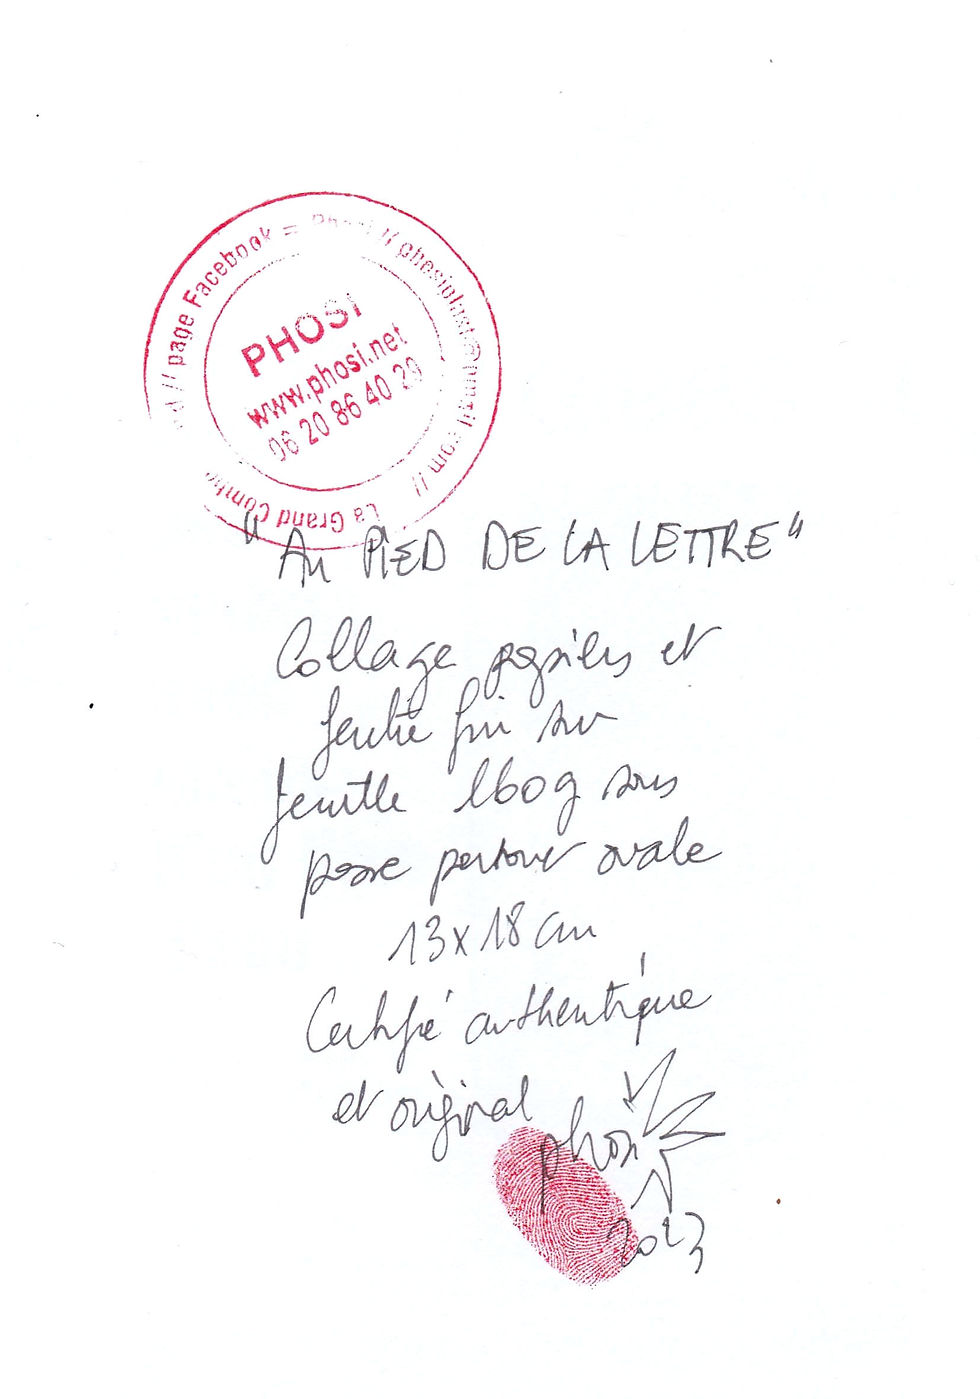 // page Facebook = Phosi // phosiplast@gmail.com // La Grand Combe
PHOSI
www.phosi.net
06 20 86 40 20
"Au PiED DE LA LETTRE"
Collage papiers et
feutre fin sur
feuille 160g sous
passe partout ovale
13x18 cm
Certifié authentique
et original
phosi
2023